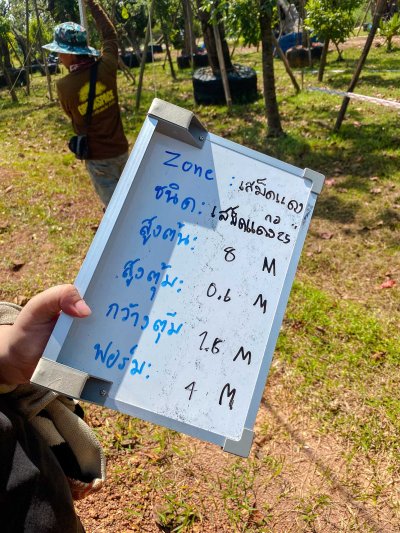 Zone : เสม็ดแดง
ชนิด: เสม็ดแดง กอ 25
สูงต้น: 8 M
สูงตุ้ม: 0.6 M
กว้างตุ้ม 1.8 M
ฟอร์ม: 4 M